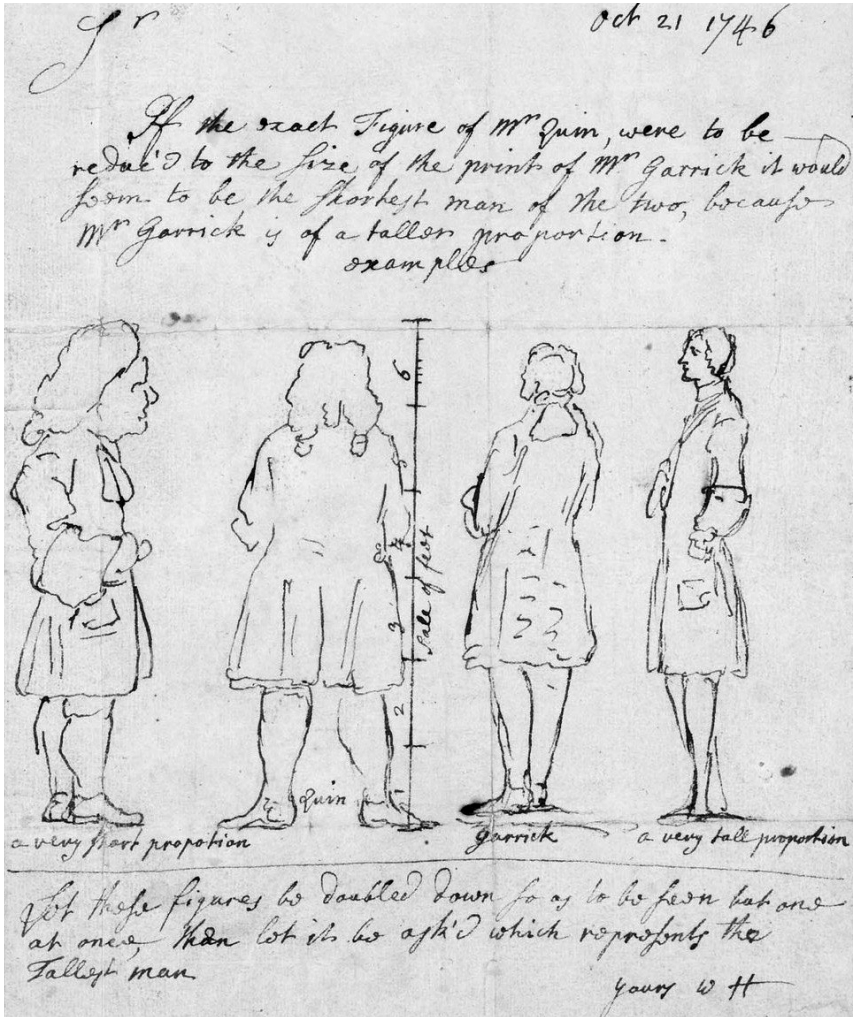 Sr
Oct 21 1746
If the exact Figure of Mr Quin, were to be
reduc'd to the Size of the print of Mr Garrick it would
seem to be the shortest man of the two, because
Mr Garrick is of a taller proportion.
examples
6
5
4
3
2
1
Scale of feet
Quin
a very short propotion
Garrick
a very tall proportion
Let these figures be doubled down so as to be seen but one
at once, then let it be ask'd which represents the
Tallest man
yours W H